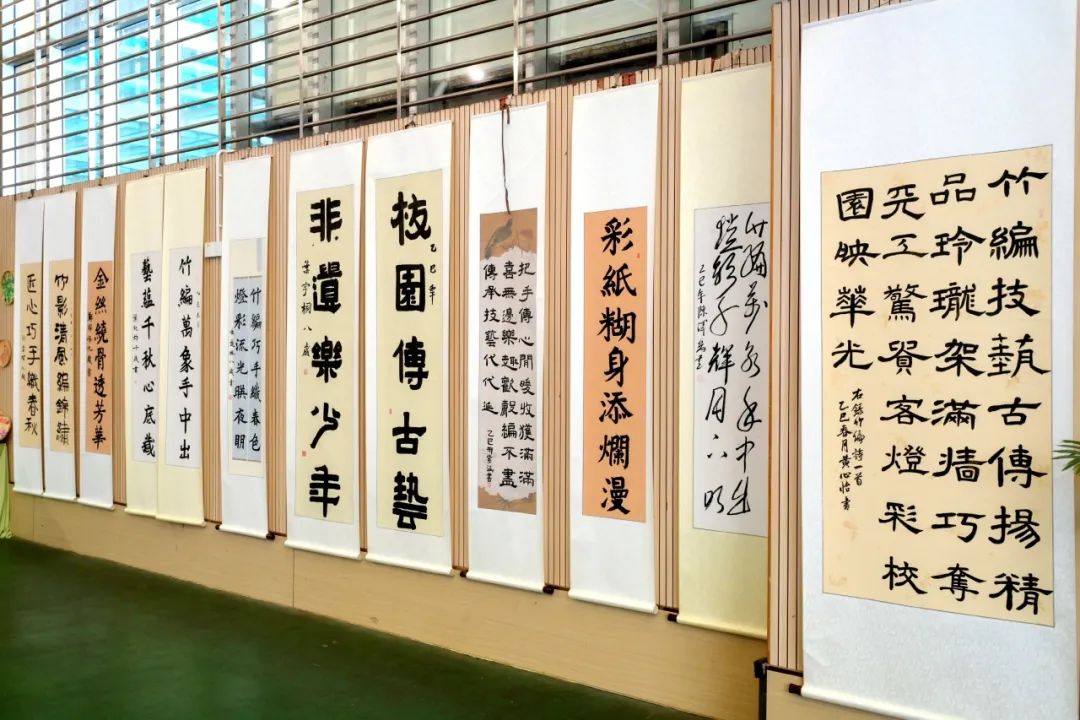 竹編技藝古傳揚精
品玲瓏架滿牆巧奪
天工驚賢客燈彩校
園映華光
右錄竹編詩一首
乙巳春月黃心怡書
竹編萬象手中生
月下明
乙巳年陳
彩紙糊身添爛漫
把手傳心間暖收獲滿滿
喜無邊樂趣歡聲編不盡
傳承技藝代代延
乙巳
校園傳古藝
乙巳年
非遺樂少年
葉宇桐八歲
竹編巧手織春色
燈彩流光映夜明
竹編萬象手中出
藝蘊千秋心底藏
金絲繞骨透芳華
竹影清風編錦繡
匠心巧手織春秋